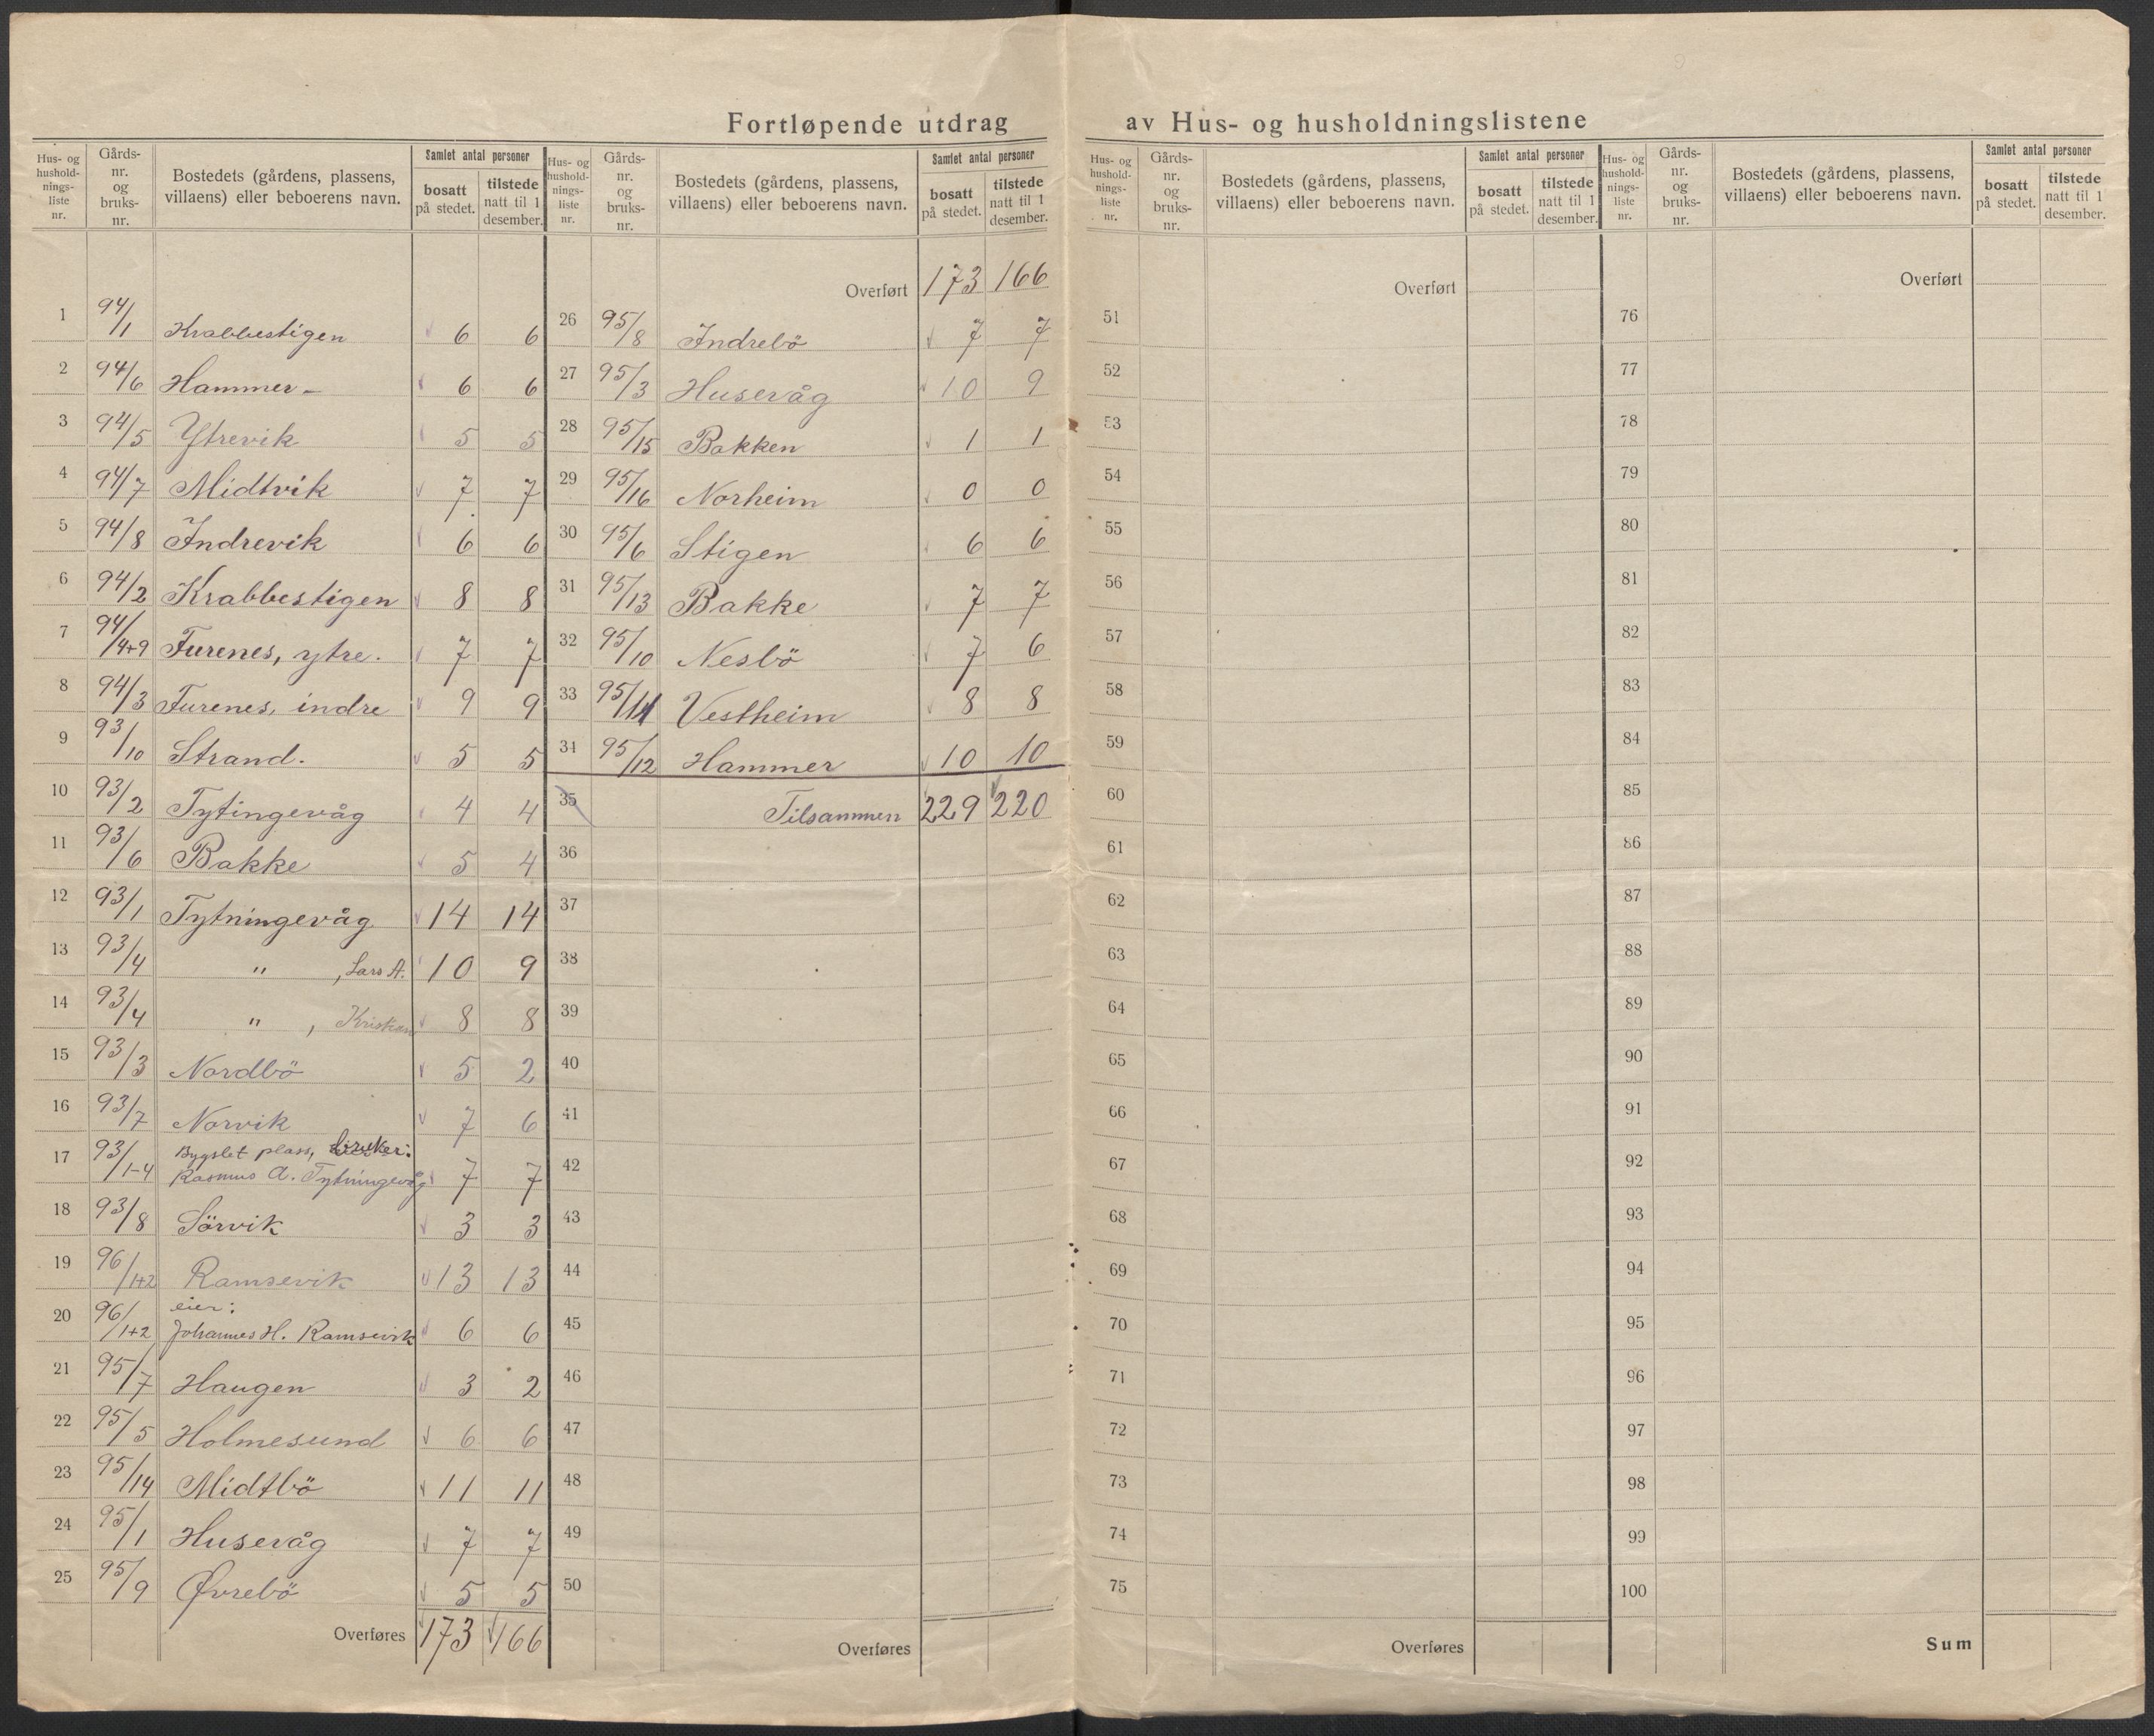 Fortløpende utdrag av Hus- og husholdningslistene
Hus- og hushold-nings-liste nr. | Gårds-nr. og bruks-nr. | Bostedets (gårdens, plassens, villaens) eller beboerens navn. | Samlet antal personer | bosatt på stedet. | tilstede natt til 1 desember.
1 94/1 Krabbestigen 6 6
2 94/6 Hammer 6 6
3 94/5 Ytrevik 5 5
4 94/7 Midtvik 7 7
5 94/8 Indrevik 6 6
6 94/2 Krabbestigen 8 8
7 94/4+9 Furenes, ytre. 7 7
8 94/3 Furenes, indre 9 9
9 93/10 Strand. 5 5
10 93/2 Tytingevåg 4 4
11 93/6 Bakke 5 4
12 93/1 Tytningevåg 14 14
13 93/4 " , Lars A. 10 9
14 93/4 " , Kristian 8 8
15 93/3 Nordbö 5 2
16 93/7 Norvik 7 6
17 93/1-4 Bygslet plass, bruker:
Rasmus A. Tytningevåg 7 7
18 93/8 Sörvik 3 3
19 96/1+2 Ramsevik 13 13
20 96/1+2 eier:
Johannes H. Ramsevik 6 6
21 95/7 Haugen 3 2
22 95/5 Holmesund 6 6
23 95/14 Midtbö 11 11
24 95/1 Husevåg 7 7
25 95/9 Øvrebö 5 5
Overføres 173 166
Hus- og hushold-nings-liste nr. | Gårds-nr. og bruks-nr. | Bostedets (gårdens, plassens, villaens) eller beboerens navn. | Samlet antal personer | bosatt på stedet. | tilstede natt til 1 desember.
Overført 173 166
26 95/8 Indrebö 7 7
27 95/3 Husevåg 10 9
28 95/15 Bakken 1 1
29 95/16 Norheim 0 0
30 95/6 Stigen 6 6
31 95/13 Bakke 7 7
32 95/10 Nesbö 7 6
33 95/11 Vestheim 8 8
34 95/12 Hammer 10 10
35 Tilsammen 229 220
36
37
38
39
40
41
42
43
44
45
46
47
48
49
50
Overføres
Hus- og hushold-nings-liste nr. | Gårds-nr. og bruks-nr. | Bostedets (gårdens, plassens, villaens) eller beboerens navn. | Samlet antal personer | bosatt på stedet. | tilstede natt til 1 desember.
Overført
51
52
53
54
55
56
57
58
59
60
61
62
63
64
65
66
67
68
69
70
71
72
73
74
75
Overføres
Hus- og hushold-nings-liste nr. | Gårds-nr. og bruks-nr. | Bostedets (gårdens, plassens, villaens) eller beboerens navn. | Samlet antal personer | bosatt på stedet. | tilstede natt til 1 desember.
Overført
76
77
78
79
80
81
82
83
84
85
86
87
88
89
90
91
92
93
94
95
96
97
98
99
100
Sum